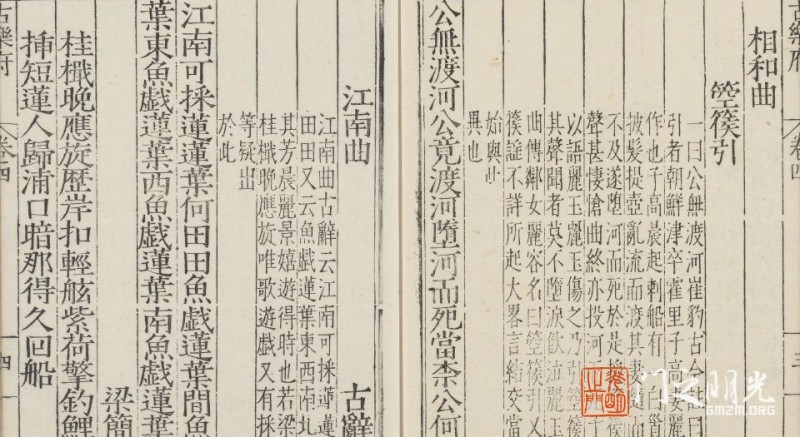 古樂府 卷四 三
相和曲
箜篌引
一曰公無渡河崔豹古今註曰
引者朝鮮津卒霍里子高妻麗
作也子高晨起刺船有一白首
披髮提壺亂流而渡其妻隨
不及遂墮河而死於是援
聲甚悽愴曲終亦投河
以語麗玉麗玉傷之乃引箜篌
其聲聞者莫不墮淚飲泣麗
曲傳鄰女麗容名曰箜篌引又
篌謠不詳所起大畧言結交當
始與此
異也
公無渡河公竟渡河墮河而死當柰公何
江南曲 古辭
江南曲古辭云江南可採蓮蓮
田田又云魚戲蓮葉東西南北
其芳晨麗景嬉遊得時也若梁
桂檝晚應旋唯歌遊戲又有採
等疑出
於此
江南可採蓮蓮葉何田田魚戲蓮葉間魚
葉東魚戲蓮葉西魚戲蓮葉南魚戲蓮葉
梁簡
桂檝晚應旋歷岸扣輕舷紫荷擎釣鯉
挿短蓮人歸浦口暗那得久回船
古樂府 卷四 四
光明之門
GMZM.ORG